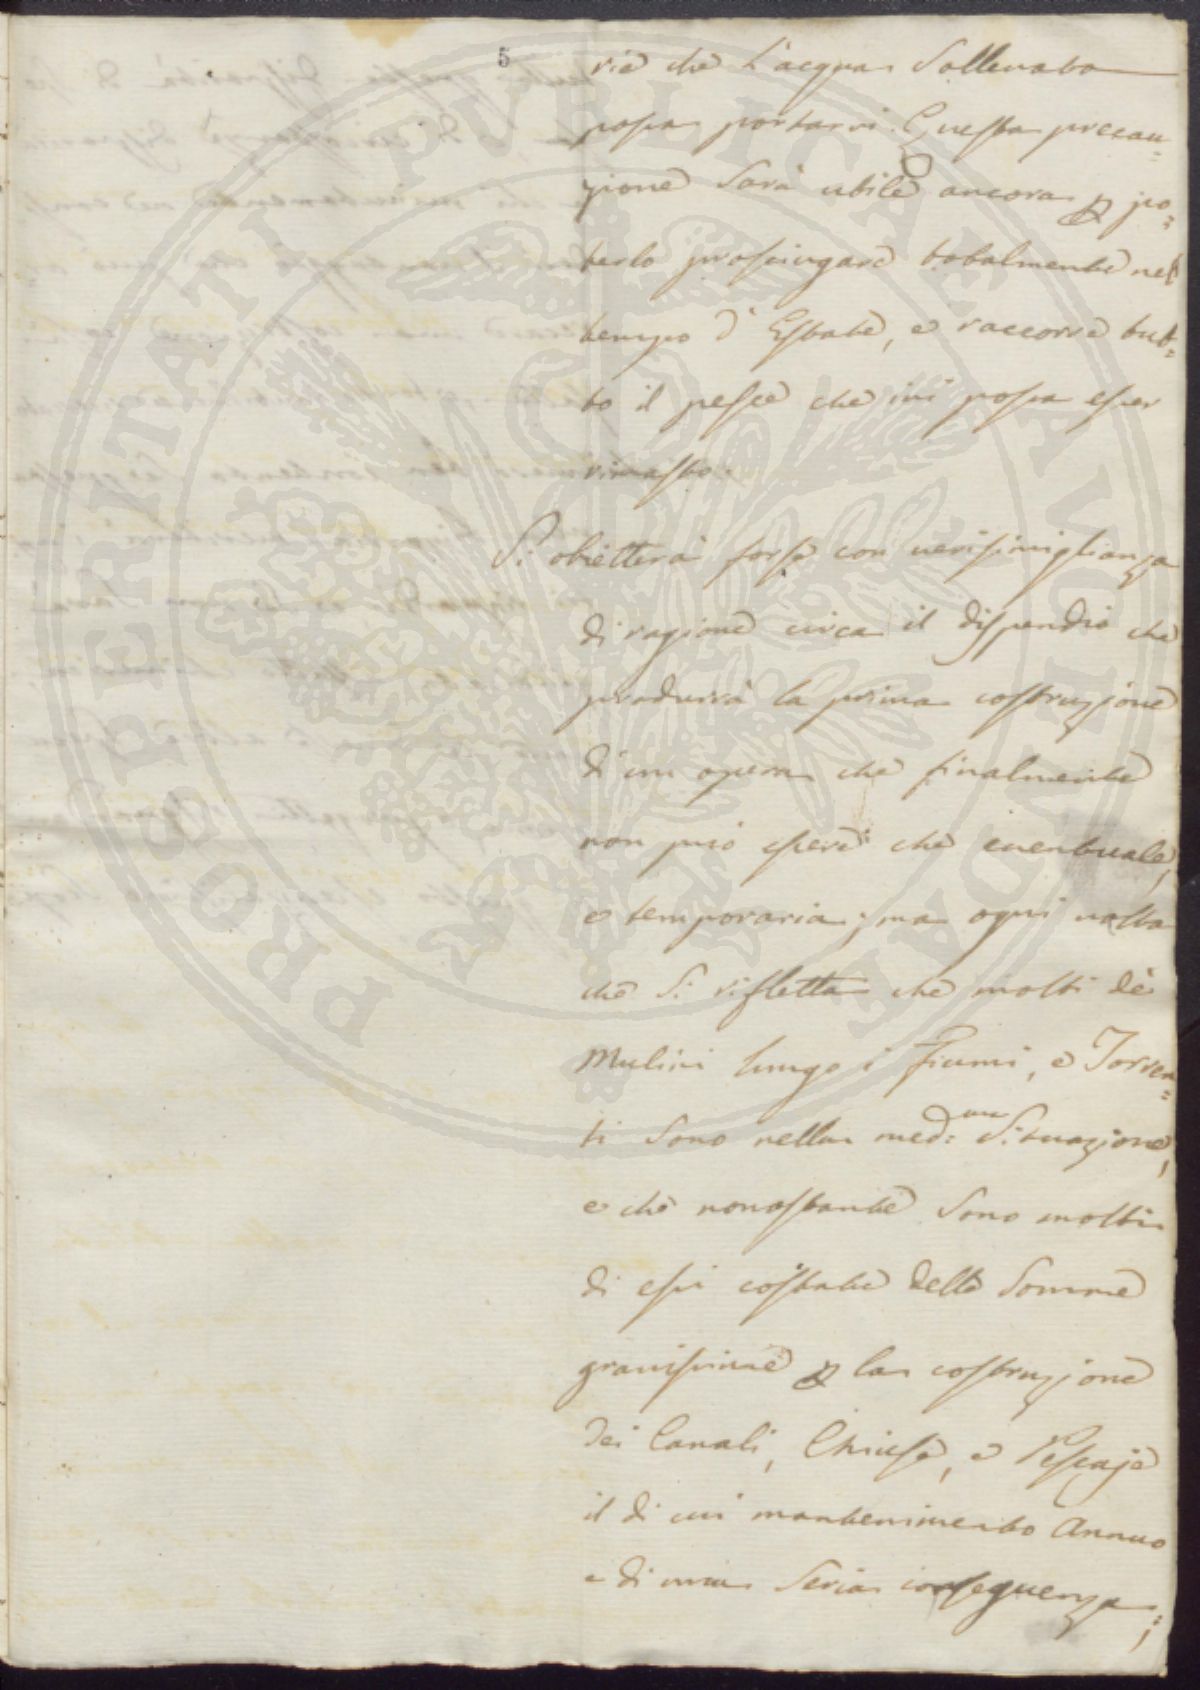 5
rie che l'acqua sollevata
possa portarvi. Questa precau=
zione sarà utile ancora p po=
terlo prosciugare totalmente nel
tempo d'Estate, e raccorre tut=
to il pesce che ivi possa esser
rimasto.
Si obietterà forse con verisimiglianza
di ragione circa il dispendio che
produrrà la prima costruzione
d'un opera che finalmente
non può essere che eventuale,
e temporaria; ma ogni volta
che si rifletta che molti dè
Mulini lungo i Fiumi, e Torren=
ti sono nella med:ma Situazione,
e che nonostante sono molti
di essi costate delle Somme
gravissime p la costruzione
dei Canali, Chiuse, e Pescaje
il di cui mantenimento Annuo
e di una seria conseguenza;
PROSPERITATI PVBLICAE AVGENDAE